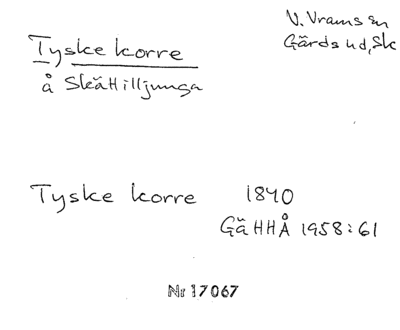 Tyske korre
V. Vrams sn
Gärds hd, Sk
å Skättilljunga
Tyske korre 1840
GäHHÅ 1958:61
Nr 17067